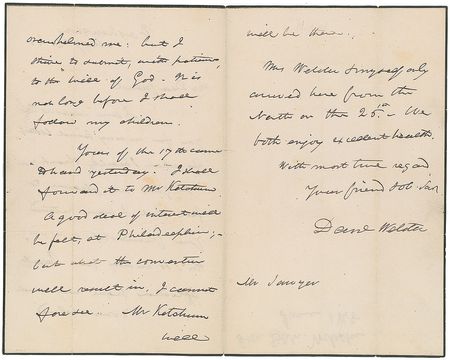 overwhelmed me: but I
strive to submit, with patience,
to the will of God. It is
not long before I shall
follow my children.
Yours of the 17th came
to hand yesterday. I shall
forward it to Mr Ketchum
A good deal of interest will
be felt, at Philadelphia;
but what the convention
will result in, I cannot
foresee. Mr Ketchum
will
will be there.
Mrs Webster & myself only
arrived here from the
North on the 25th. We
both enjoy excellent health.
With most true regard
Your friend & ob. Ser
Danl Webster
Mr Sawyer